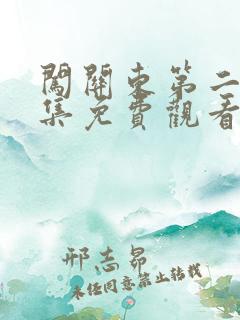 闖關東第二
集免費觀看
邢志昂
未任同意禁止轉載